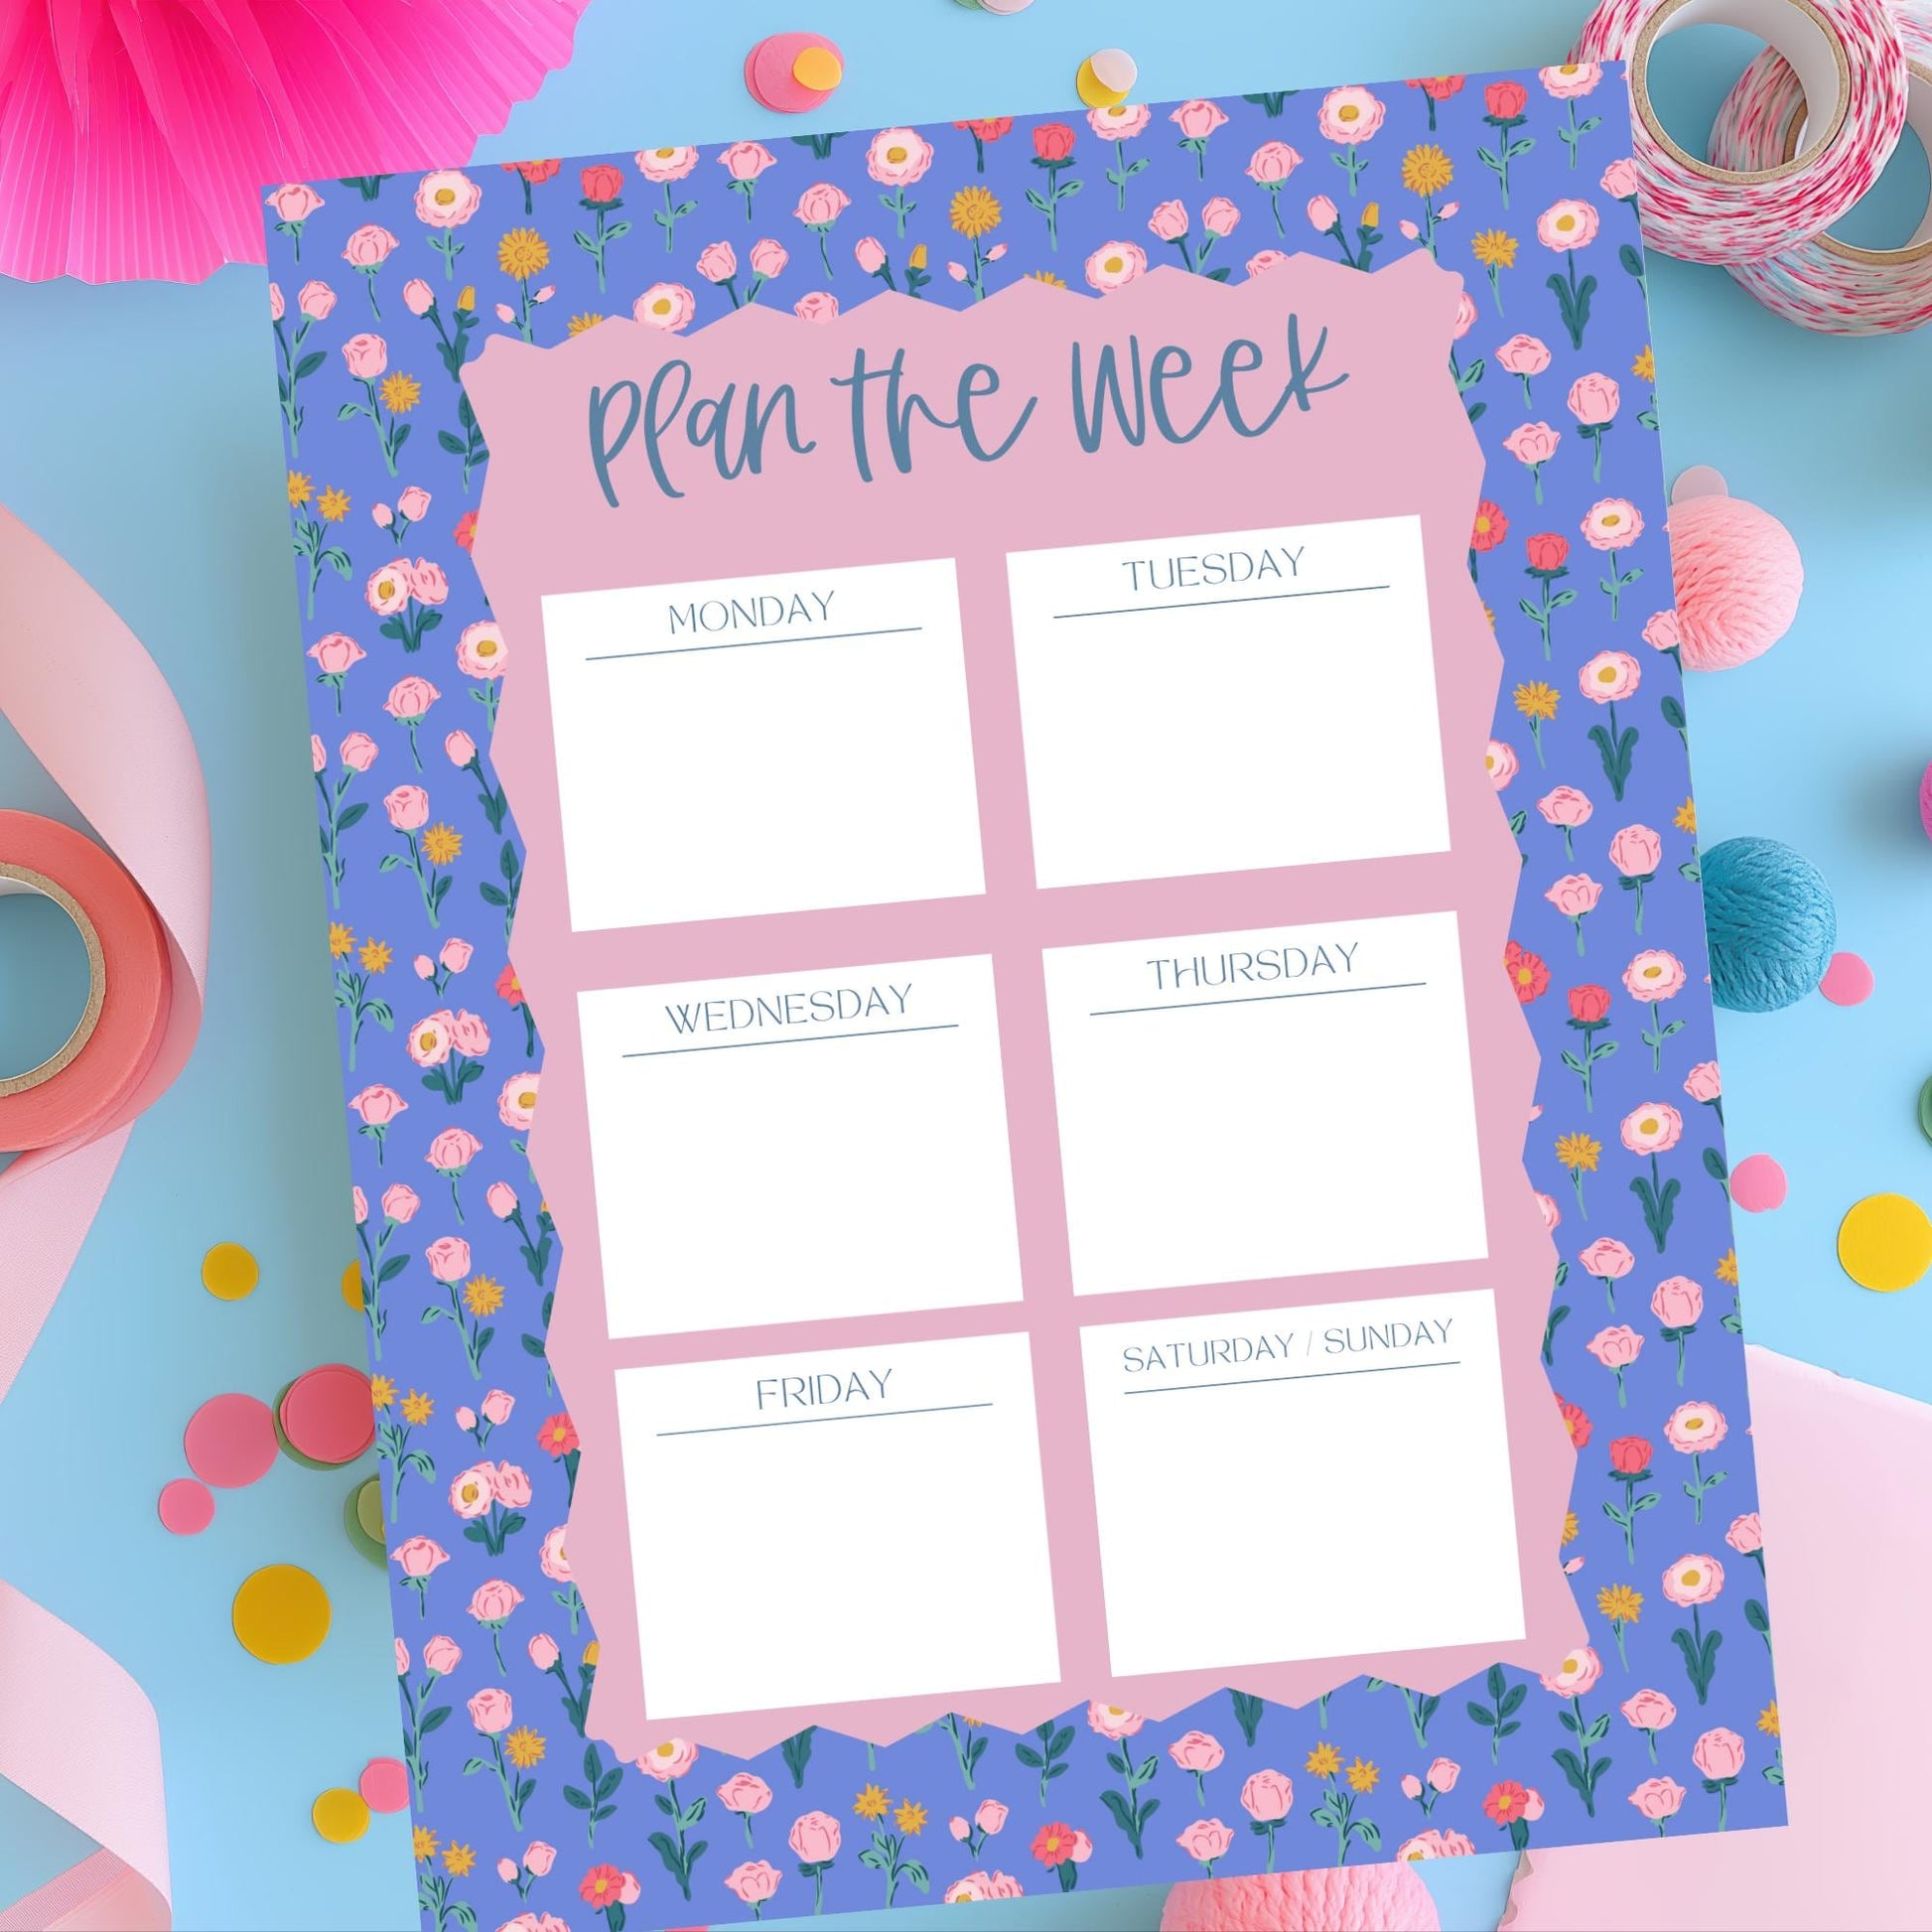 Plan the Week
MONDAY
TUESDAY
WEDNESDAY
THURSDAY
FRIDAY
SATURDAY / SUNDAY